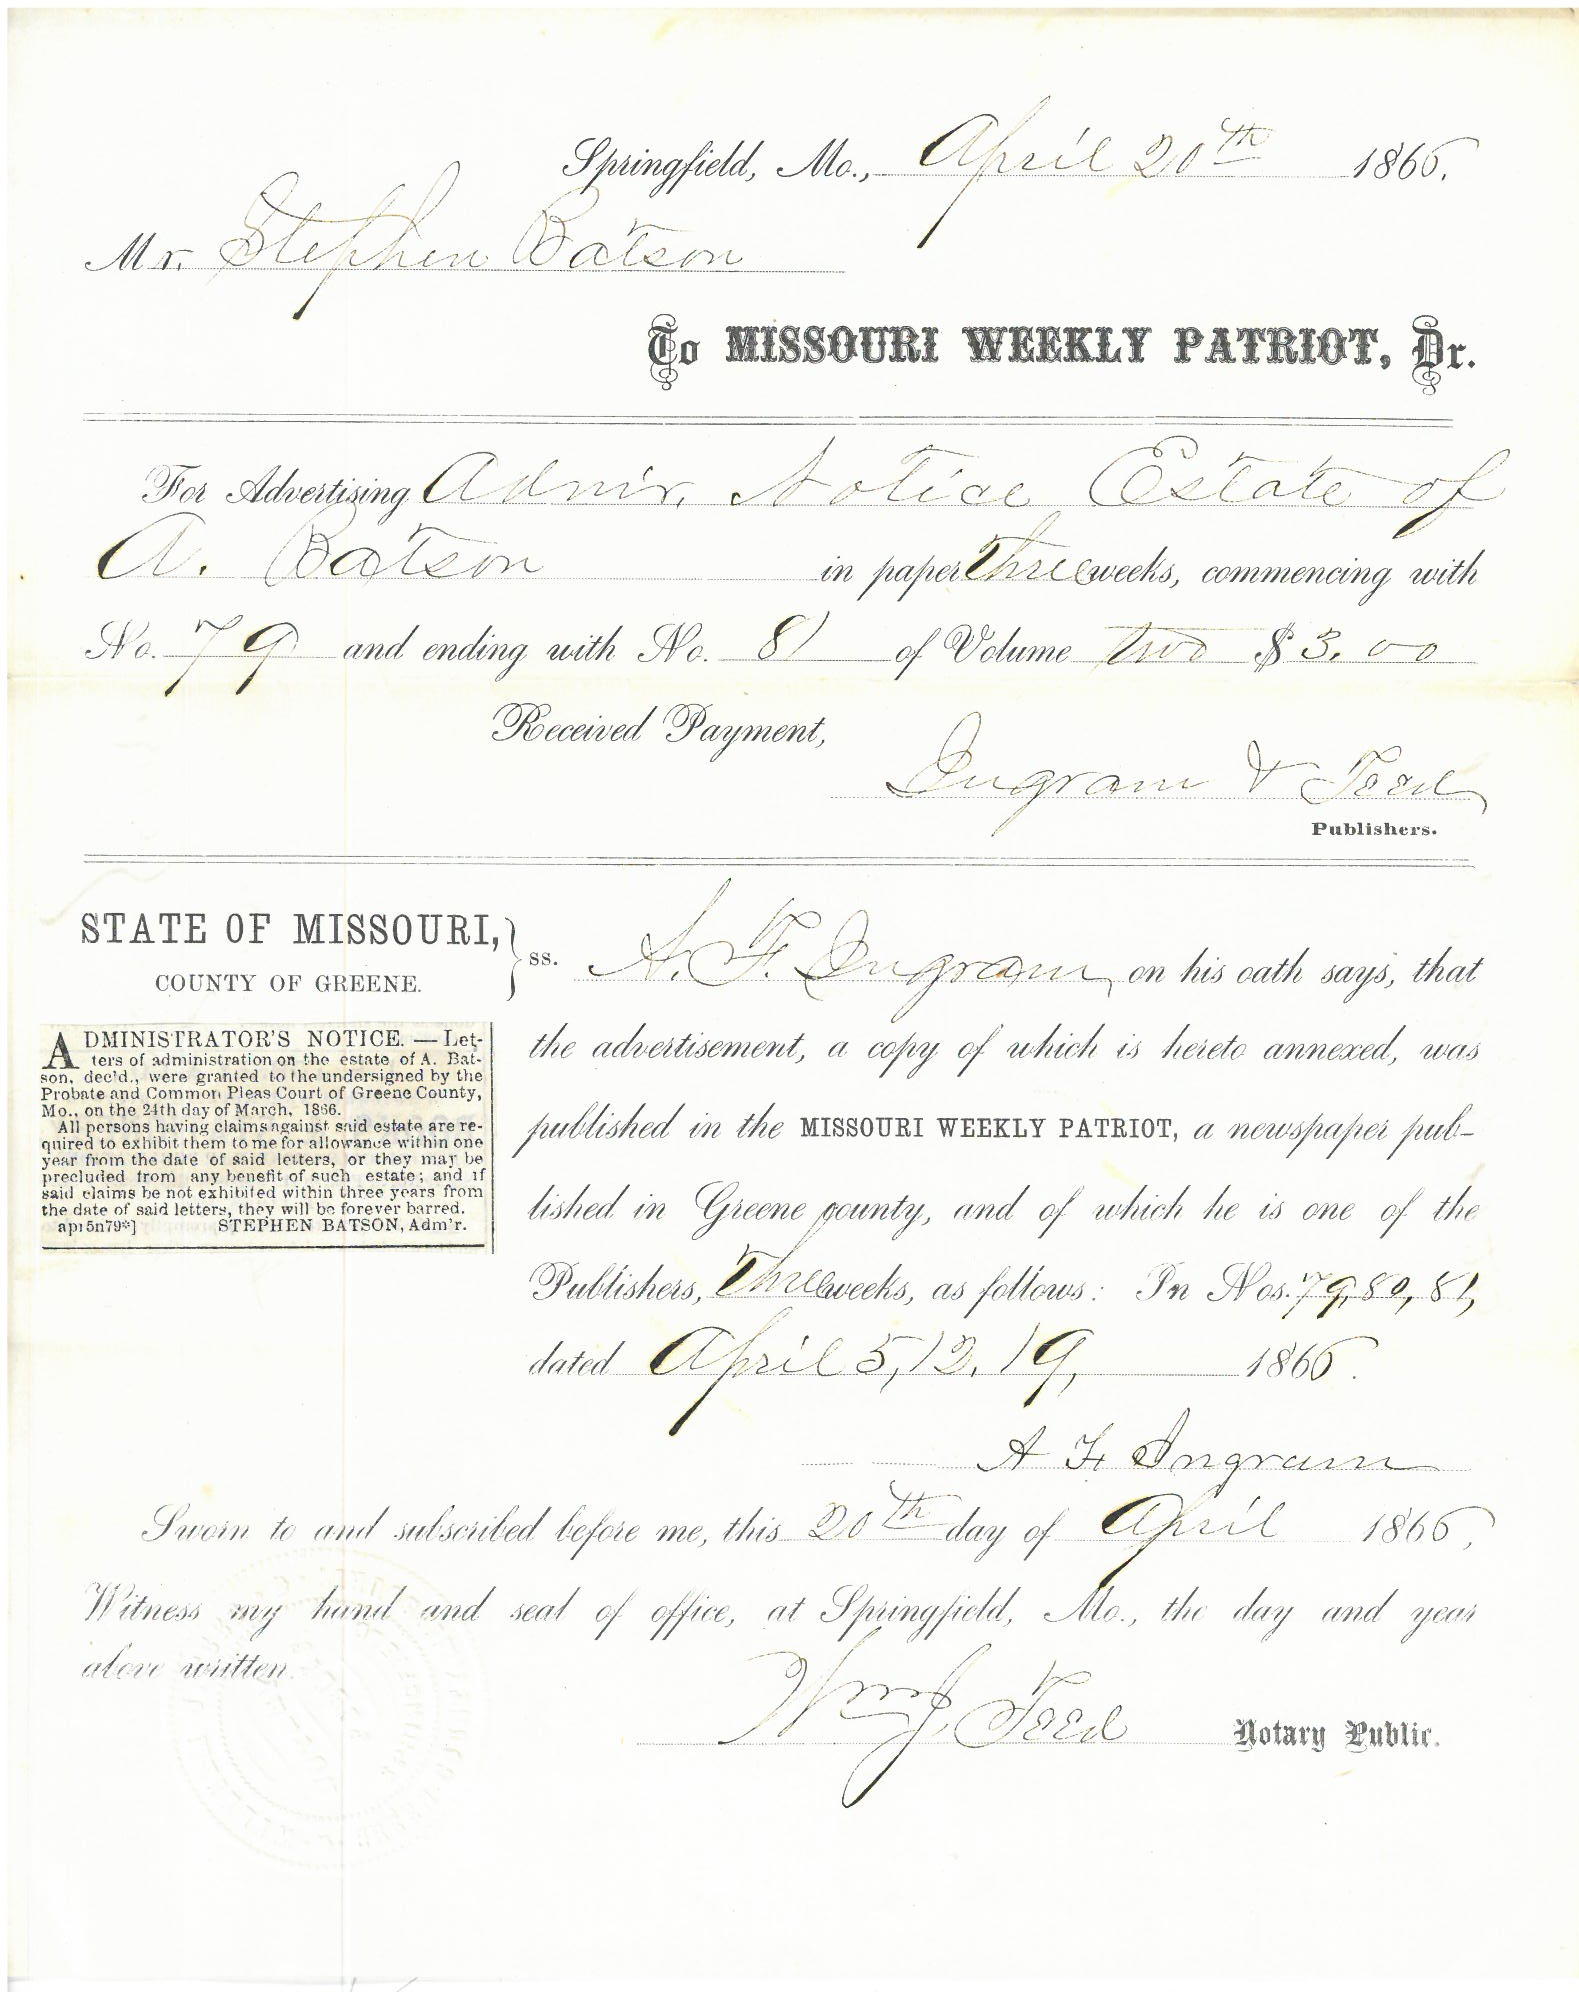 Springfield, Mo., April 20th 1866.
Mr. Stephen Batson
To MISSOURI WEEKLY PATRIOT, Dr.
For Advertising Admr. Notice Estate of
A. Batson in paper three weeks, commencing with
No. 79 and ending with No. 81 of Volume two $3.00
Received Payment,
Ingram & Teed
Publishers.
STATE OF MISSOURI,
COUNTY OF GREENE.
ss. A. F. Ingram on his oath says, that
the advertisement, a copy of which is hereto annexed, was
published in the MISSOURI WEEKLY PATRIOT, a newspaper pub-
lished in Greene county, and of which he is one of the
Publishers, Three weeks, as follows: In Nos. 79, 80, 81,
dated April 5, 12, 19, 1866.
A F Ingram
ADMINISTRATOR'S NOTICE. — Let-
ters of administration on the estate of A. Bat-
son, dec'd., were granted to the undersigned by the
Probate and Common Pleas Court of Greene County,
Mo., on the 24th day of March, 1866.
All persons having claims against said estate are re-
quired to exhibit them to me for allowance within one
year from the date of said letters, or they may be
precluded from any benefit of such estate; and if
said claims be not exhibited within three years from
the date of said letters, they will be forever barred.
apr5n79*] STEPHEN BATSON, Adm'r.
Sworn to and subscribed before me, this 20th day of April 1866,
Witness my hand and seal of office, at Springfield, Mo., the day and year
above written.
Wm J. Teed Notary Public.